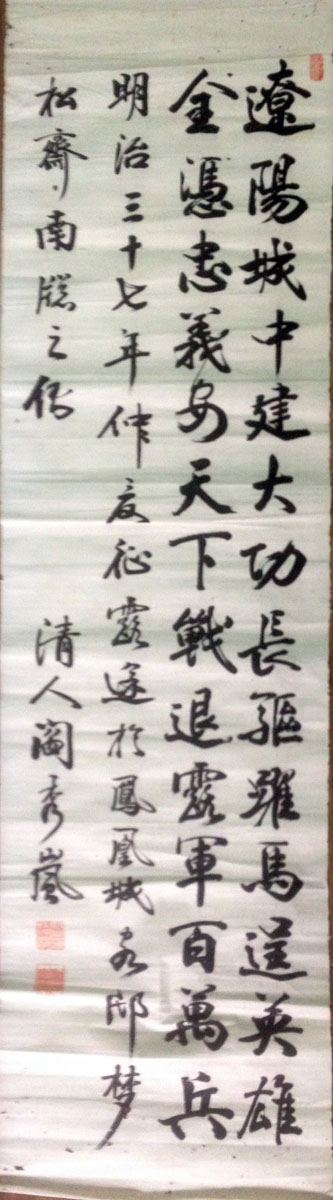 遼陽城中建大功長驅躍馬逞英雄
全憑忠義安天下戰退露軍百萬兵
明治三十七年仲夏征露途於鳳凰城客邸梦
松齋南牕之側 清人閻秀嵐